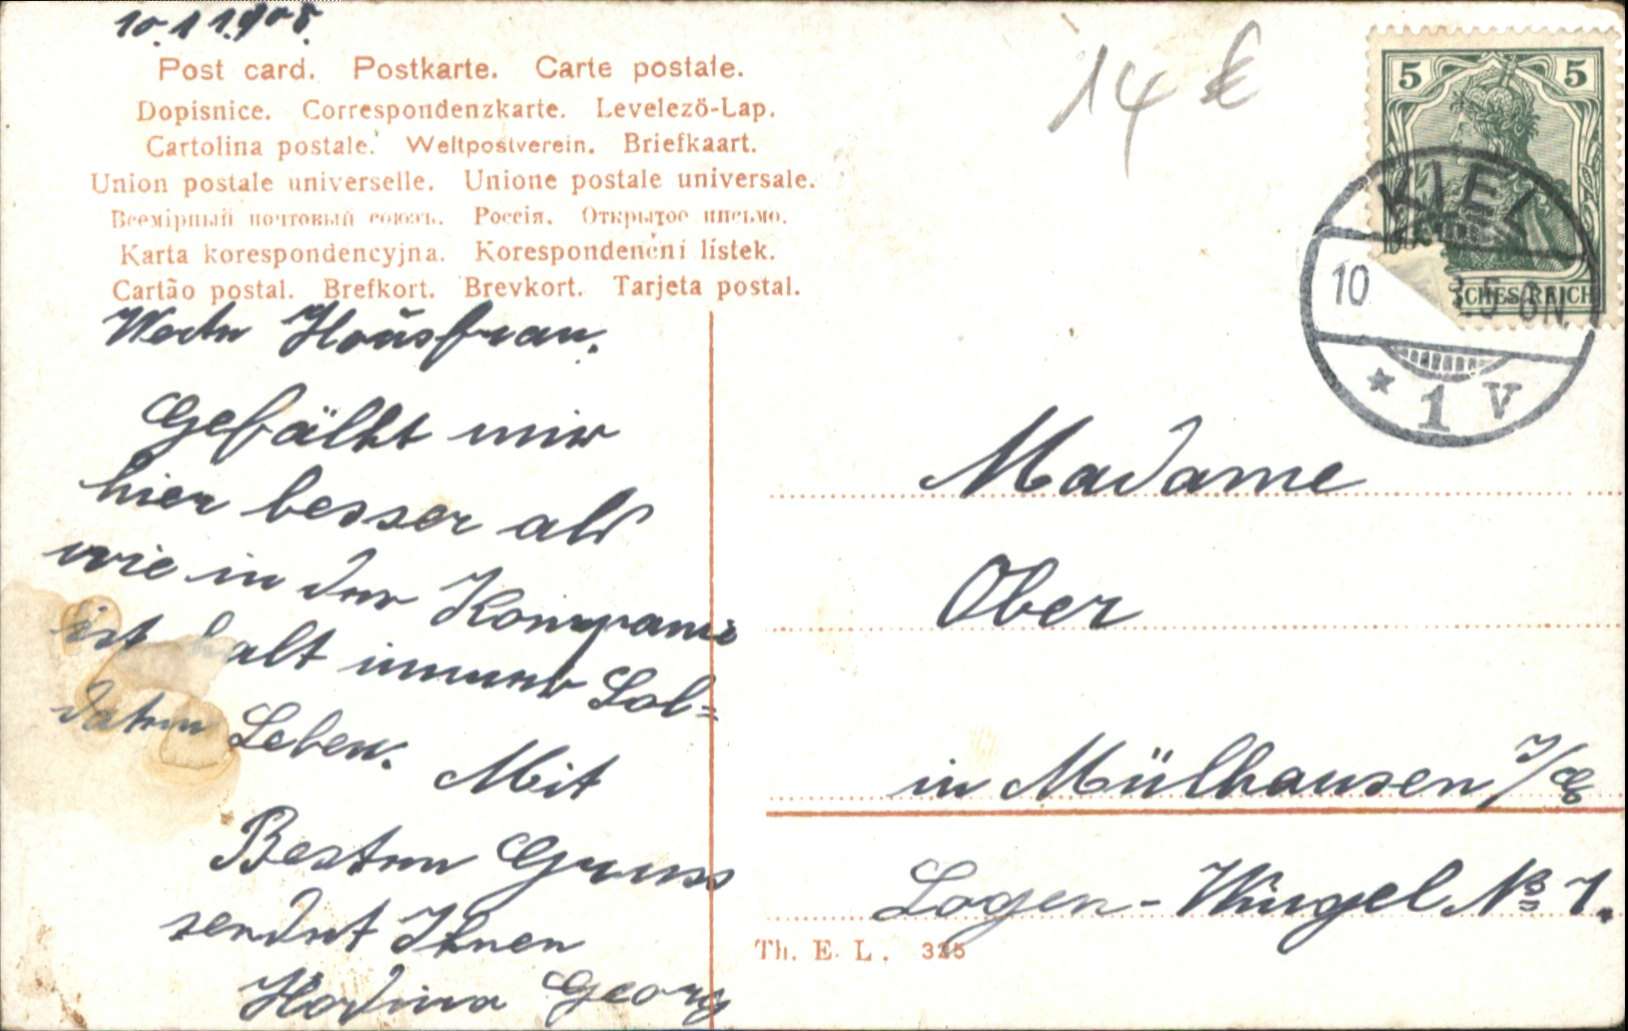 10.11.1905.
Post card. Postkarte. Carte postale.
Dopisnice. Correspondenzkarte. Levelező-Lap.
Cartolina postale. Weltpostverein. Briefkaart.
Union postale universelle. Unione postale universale.
Всемірный почтовый союзъ. Россія. Открытое письмо.
Karta korespondencyjna. Korespondenční lístek.
Cartão postal. Brefkort. Brevkort. Tarjeta postal.
14 €
5 5
KIEL
10
5-6N.
SCHES REICH
* 1 V
Werte Hausfrau.
Gefällt mir
hier besser als
wie in der Kompanie
ist halt immer Sol=
daten Leben. Mit
Besten Gruss
sendet Ihnen
Georg
Madame
Ober
in Mülhausen i/E
Logen-Wingel No 1.
Th. E. L. 325